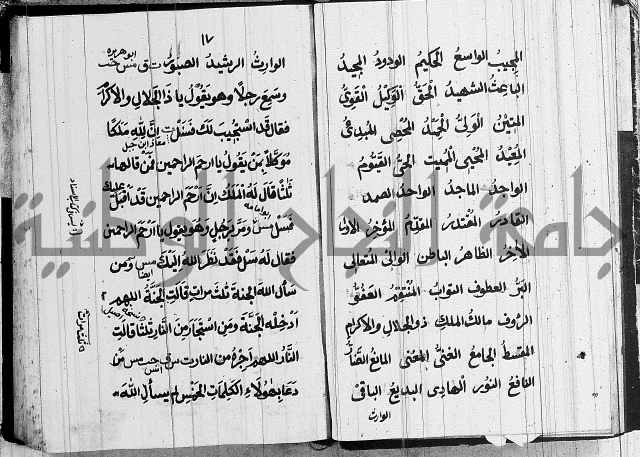 المجيب الواسع الحكيم الودود المجيد
الباعث الشهيد الحق الوكيل القوى
المتين الولى الحميد المحصى المبدئ
المعيد المحيى المميت الحى القيوم
الواجد الماجد الواحد الصمد
القادر المقتدر المقدم المؤخر الاول
الآخر الظاهر الباطن الوالى المتعالى
البر العطوف التواب المنتقم العفو
الرؤف مالك الملك ذو الجلال والاكرام
المقسط الجامع الغنى المغنى المانع الضار
النافع النور الهادى البديع الباقى
الوارث
١٧
الوارث الرشيد الصبور ت ق مس حب
ابو هريره
وسمع رجلا وهو يقول يا ذا الجلال والاكرام
فقال قد استجيب لك فسئل ت ان لله ملكا
معاذ ابن جبل
موكلا بمن يقول يا ارحم الراحمين فمن قالها
ثلثا قال له الملك ان ارحم الراحمين قد اقبل عليك
ابو امامه
فسل مس ومر برجل وهو يقول يا ارحم الراحمين
فقال له سل فقد نظر الله اليك مس ومن
سأل الله الجنة ثلث مرات قالت الجنة اللهم
ادخله الجنة ومن استجار من النار ثلثا قالت
النار اللهم اجره من النار ت س ق حب مس من
انس
دعا بهولاء الكلمات الخمس لم يسأل الله
ثلث مرات
جامعة النجاح الوطنية